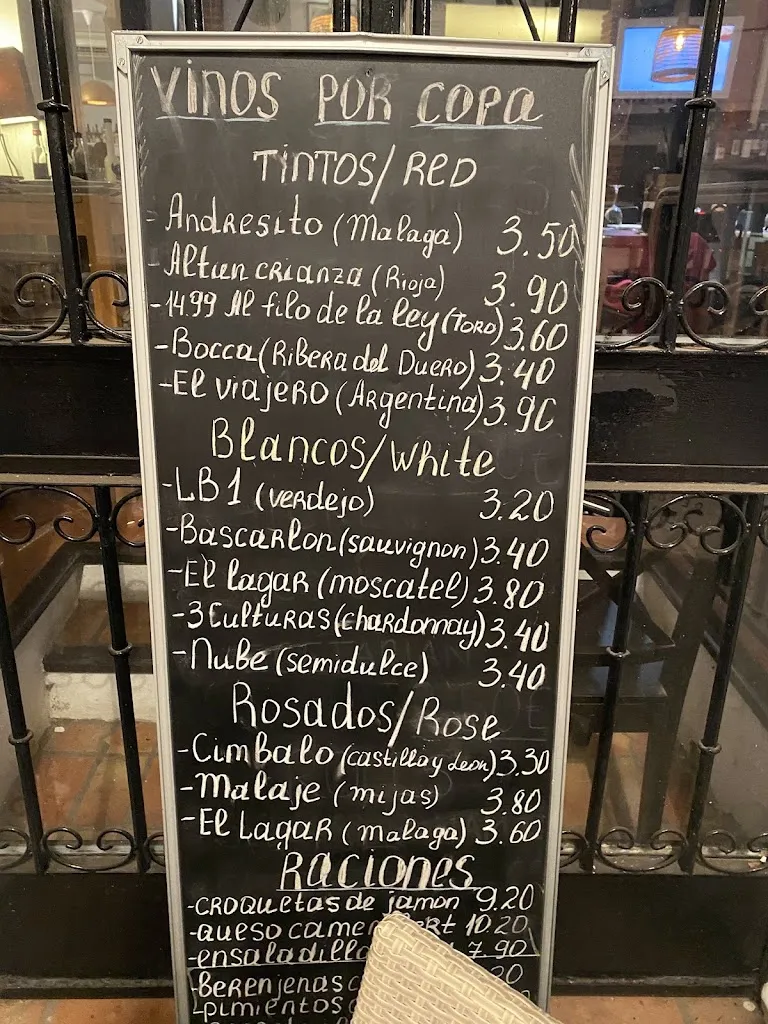 VINOS POR COPA
TINTOS/RED
- Andresito (Malaga) 3.50
- Altun crianza (Rioja) 3.90
- 14.99 Al filo de la ley (TORO) 3.60
- Bocca (Ribera del Duero) 3.40
- El viajero (Argentina) 3.90
Blancos/White
- LB1 (verdejo) 3.20
- Bascarlon (sauvignon) 3.40
- El lagar (moscatel) 3.80
- 3 Culturas (chardonnay) 3.40
- Nube (semidulce) 3.40
Rosados/Rose
- Cimbalo (castilla y Leon) 3.30
- Malaje (mijas) 3.80
- El Lagar (malaga) 3.60
Raciones
- croquetas de jamon 9.20
- queso 10.20
- ensaladilla 7.90
- berenjenas
- pimientos